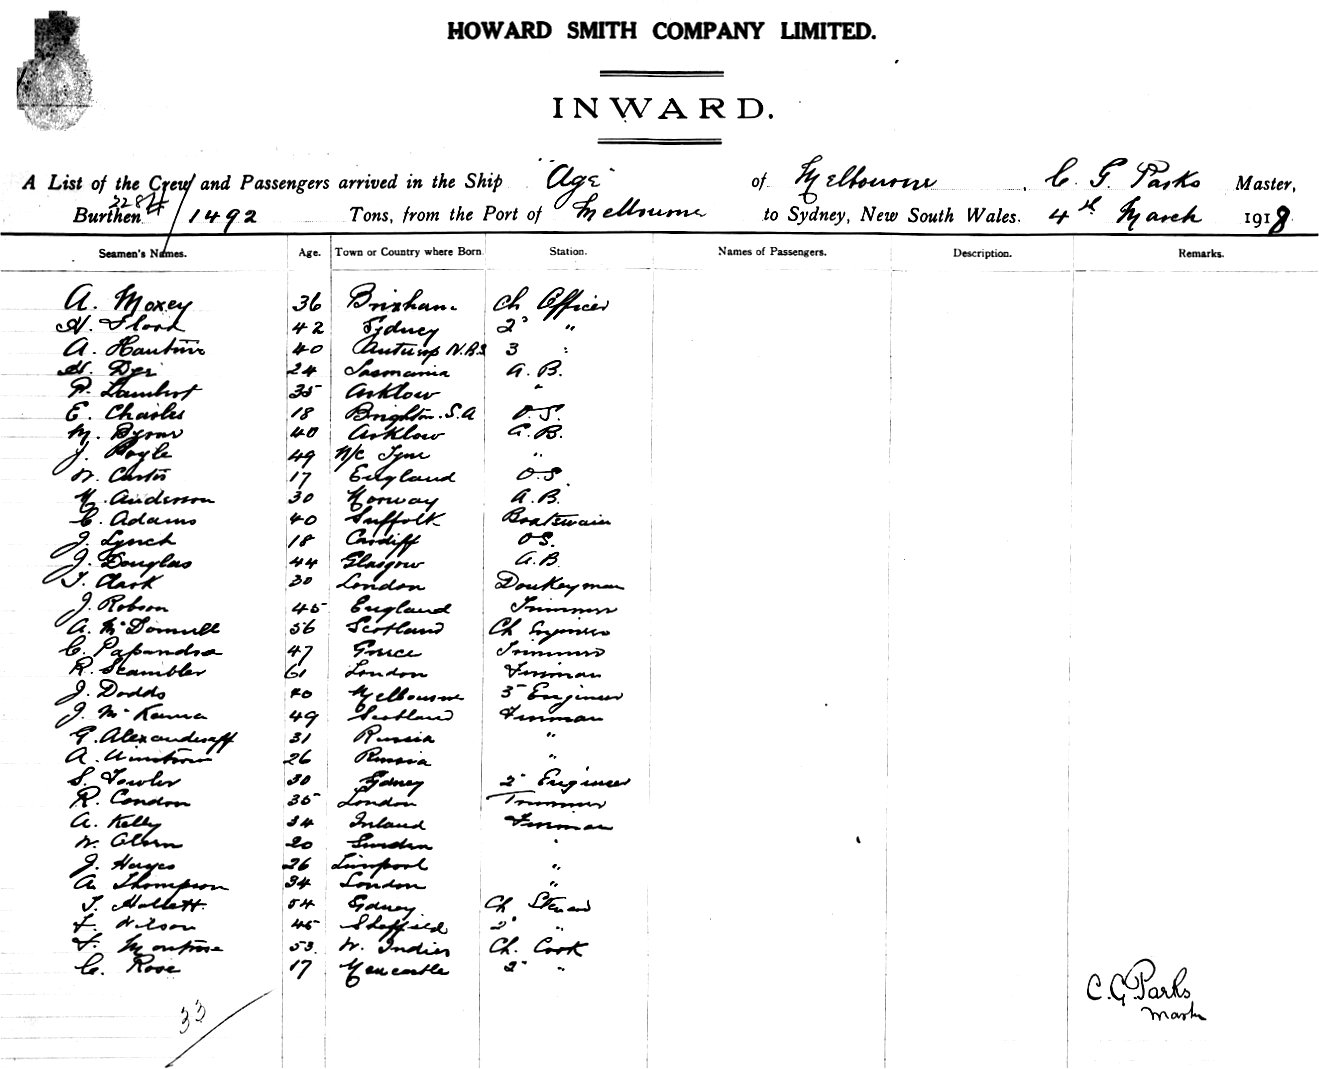 HOWARD SMITH COMPANY LIMITED.
INWARD.
A List of the Crew and Passengers arrived in the Ship "Age" of Melbourne, C. G. Parks Master,
Burthen 2284/1492 Tons, from the Port of Melbourne to Sydney, New South Wales. 4th March 1918
Seamen's Names. Age. Town or Country where Born. Station. Names of Passengers. Description. Remarks.
A. Moxey 36 Brixham Ch Officer
H. Flood 42 Sydney 2" "
A. 40 3 "
H. 24 Tasmania A.B.
P. Lambert 35 Arklow "
E. Charles 18 Brighton. S.A O.S.
M. Byrne 40 Arklow A.B.
J. Boyle 49 N/c Tyne "
W. Curtis 17 England O.S.
Anderson 30 Norway A.B.
C. Adams 40 Suffolk Boatswain
J. Lynch 18 Cardiff O.S.
J. Douglas 44 Glasgow A.B.
T. Clark 30 London Donkeyman
J. Robson 45 England Trimmer
A. McDonnell 56 Scotland Ch Engineer
C. Papandrea 47 Greece Trimmer
R. Scambler 61 London Fireman
J. Dodds 40 Melbourne 3" Engineer
J. McKenna 49 Scotland Fireman
G. 31 Russia "
A. 26 Russia "
S. Fowler 30 Sydney 2" Engineer
R. Condon 35 London Trimmer
A. Kelly 34 Ireland Fireman
W. 20 "
J. Hayes 26 Liverpool "
A. Thompson 34 London "
T. Hallett. 54 Sydney Ch Steward
F. Wilson 45 Sheffield 2" "
F. Montrose 53. W. Indies Ch. Cook
C. Rose 17 Newcastle 2" "
33
C. G Parks
Master